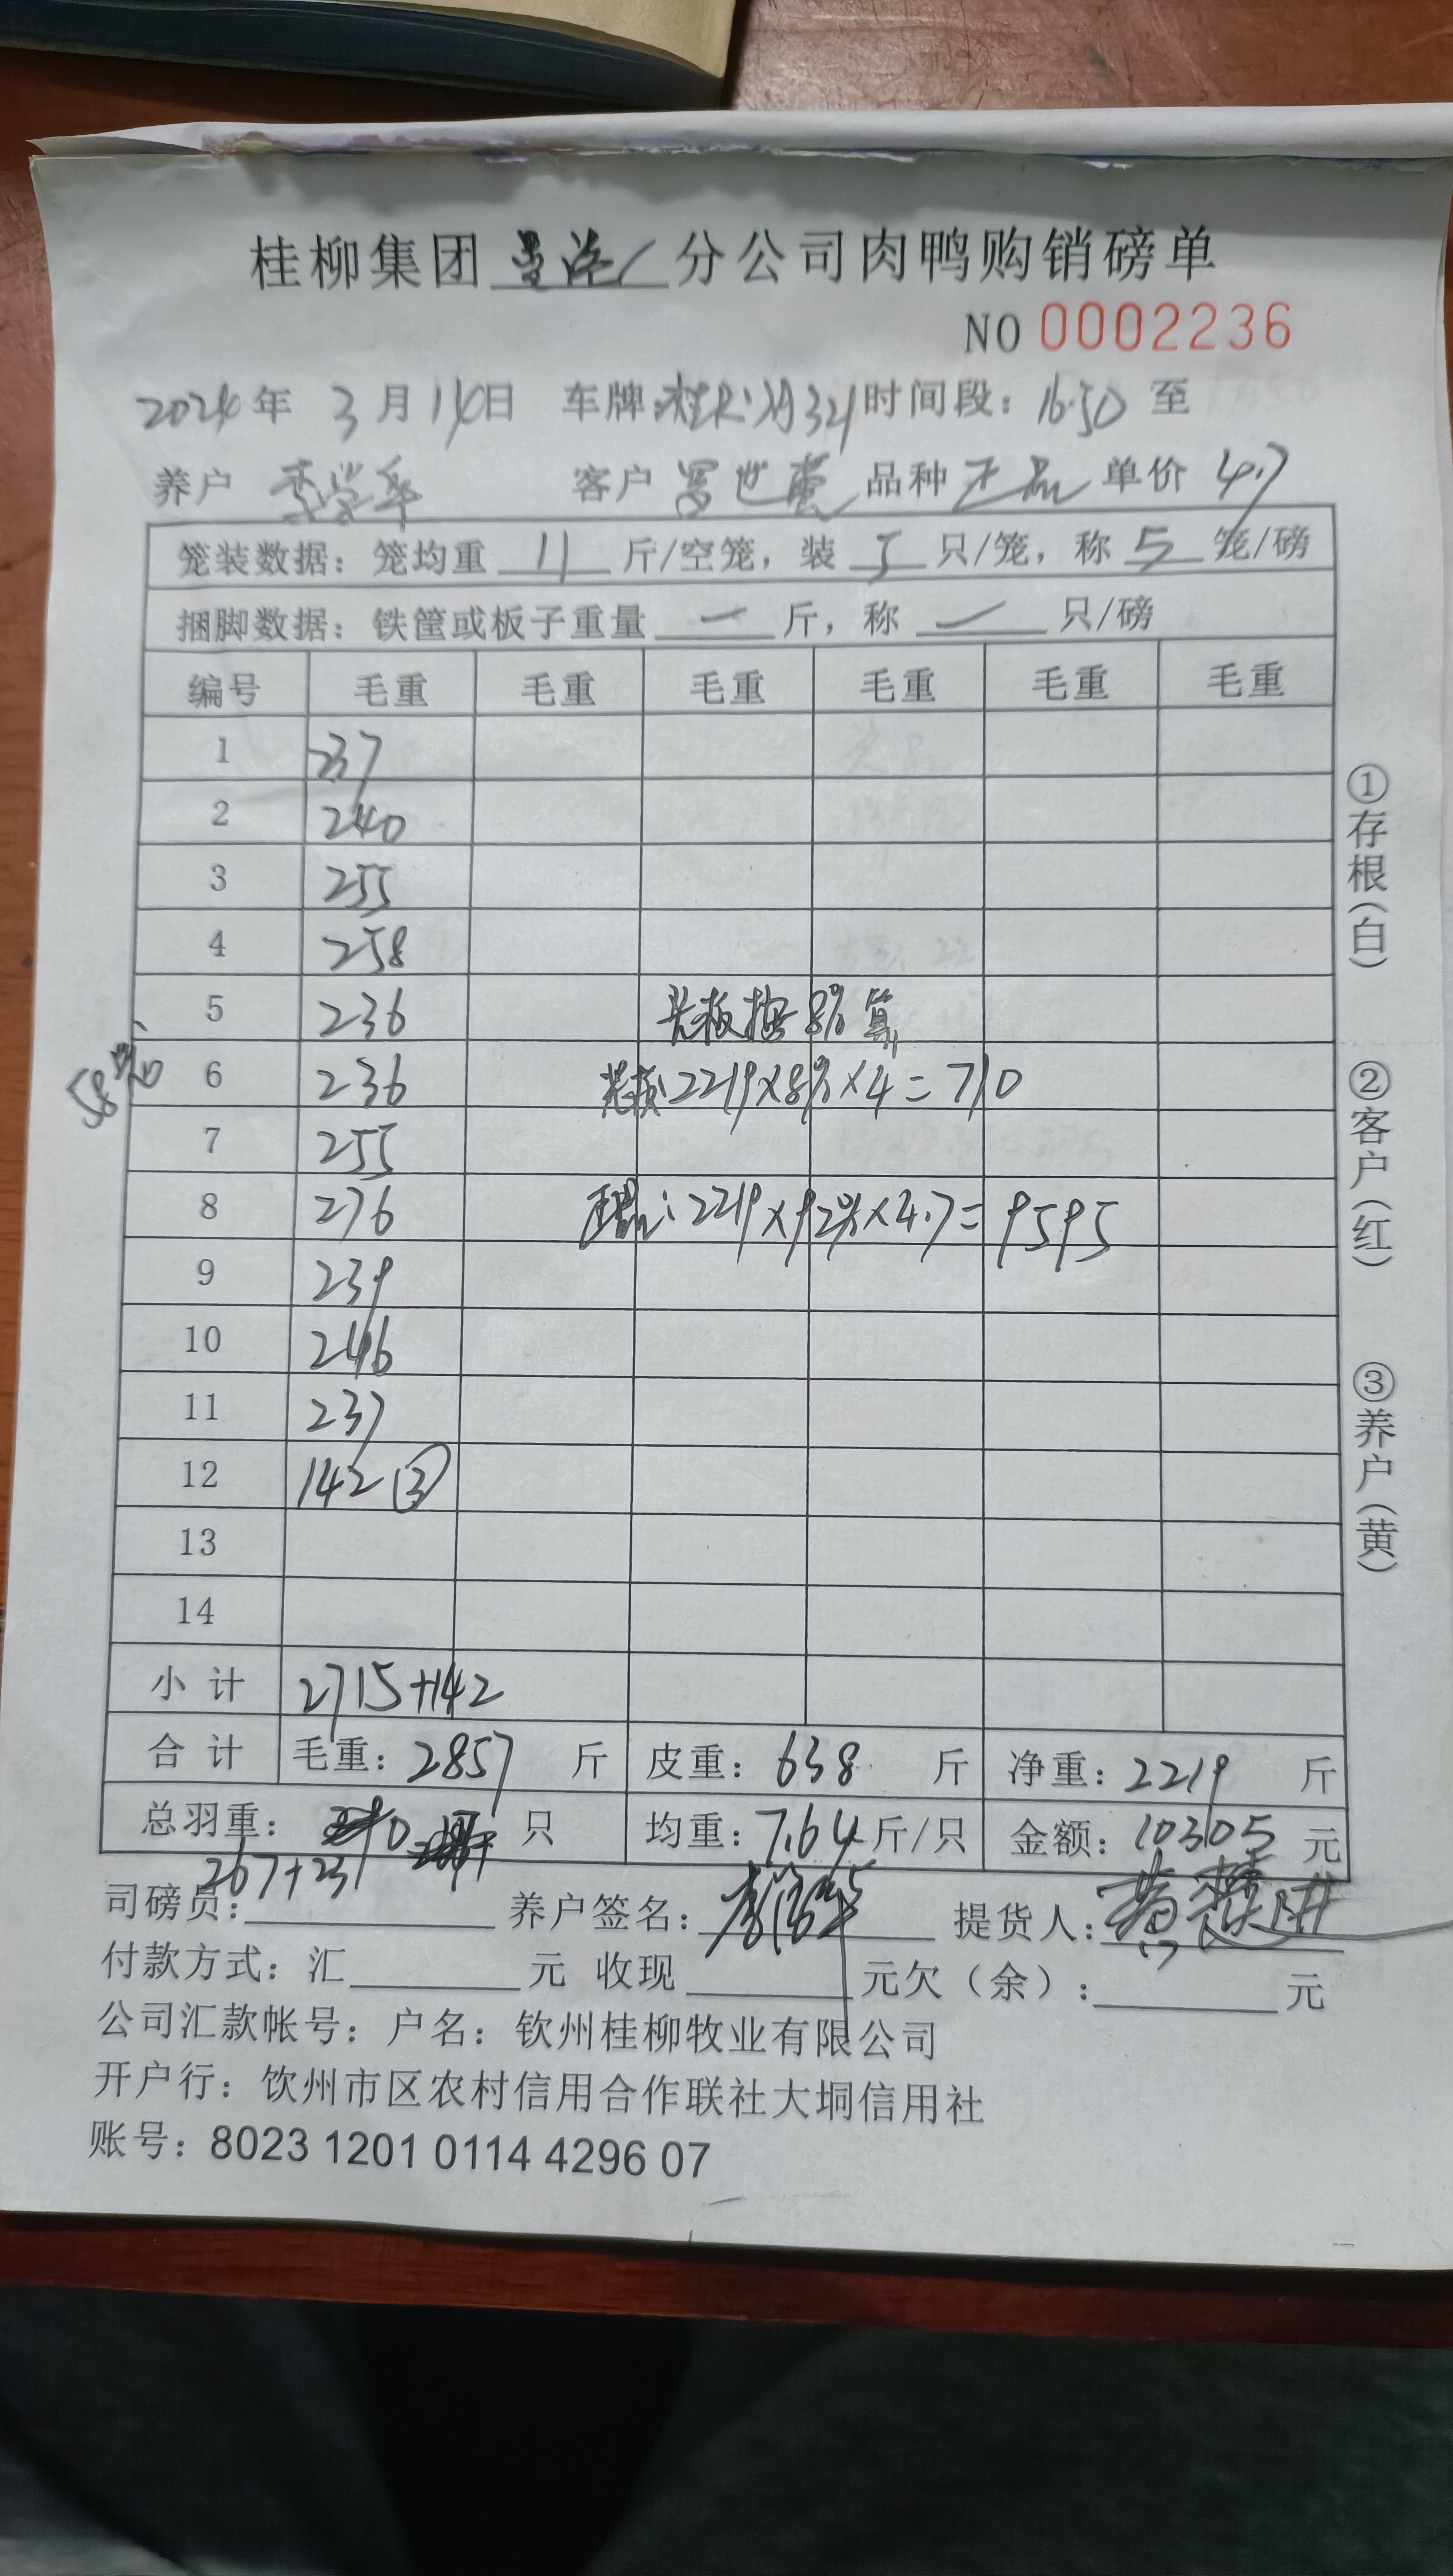 桂柳集团 分公司肉鸭购销磅单
NO 0002236
2024年 3月14日 车牌: 时间段: 16:50 至
养户 李学华 客户 世 品种 正品 单价 4.7
笼装数据: 笼均重 11 斤/空笼, 装 5 只/笼, 称 5 笼/磅
捆脚数据: 铁筐或板子重量 一 斤, 称 一 只/磅
编号 毛重 毛重 毛重 毛重 毛重 毛重
1 237
2 240
3 255
4 258
5 236 按8% 算
58笼
6 236 2219×8%×4=710
7 255
8 276 正品:2219×92%×4.7=9595
9 239
10 246
11 237
12 142 ③
13
14
小计 2715+142
合计 毛重: 2857 斤 皮重: 638 斤 净重: 2219 斤
总羽重: 只 均重: 7.64 斤/只 金额: 10305 元
267+23
司磅员: 养户签名: 李学华 提货人:
付款方式: 汇 元 收现 元欠(余): 元
公司汇款帐号: 户名: 钦州桂柳牧业有限公司
开户行: 饮州市区农村信用合作联社大垌信用社
账号: 8023 1201 0114 4296 07
①存根(白)
②客户(红)
③养户(黄)